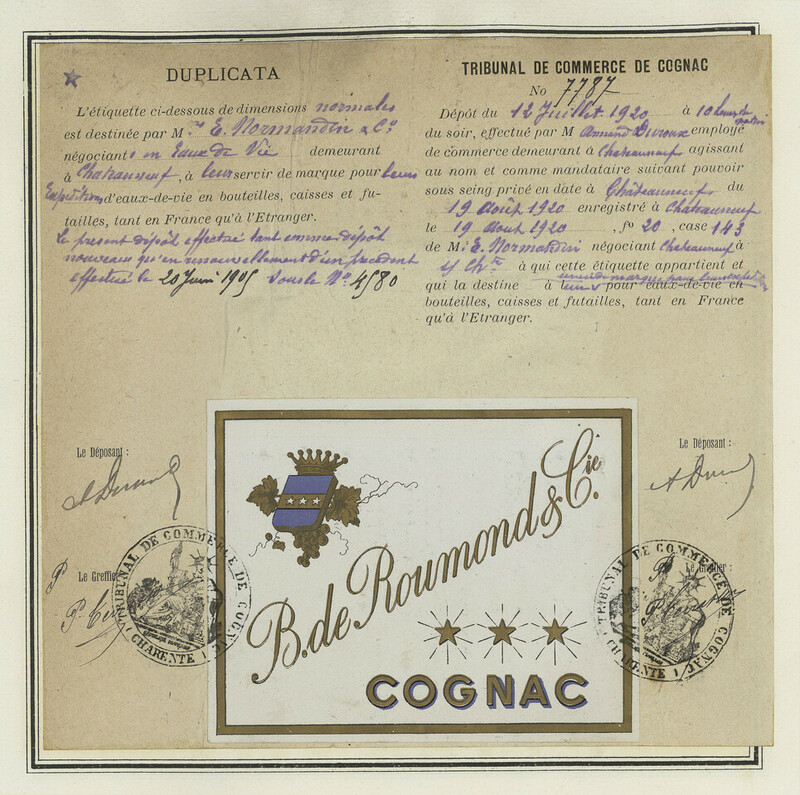 DUPLICATA
L'étiquette ci-dessous de dimensions normales
est destinée par M.rs E. Normandin & Co
négociants en Eaux de Vie demeurant
à Chateauneuf, à leur servir de marque pour leurs
Expéditions d'eaux-de-vie en bouteilles, caisses et fu-
tailles, tant en France qu'à l'Etranger.
Le présent dépôt effectué tant comme dépôt
nouveau qu'en renouvellement d'un précédent
effectué le 20 Juin 1905 sous le No. 4580
TRIBUNAL DE COMMERCE DE COGNAC
No 7787
Dépôt du 12 Juillet 1920 à 10 heures du matin
du soir, effectué par M Armand Duroux employé
de commerce demeurant à Chateauneuf agissant
au nom et comme mandataire suivant pouvoir
sous seing privé en date à Châteauneuf du
19 Août 1920 enregistré à Châteauneuf
le 19 Aout 1920, fo 20, case 143
de M. E. Normandin négociant Chateauneuf à
s/ Chte à qui cette étiquette appartient et
qui la destine à pour eaux-de-vie en
bouteilles, caisses et futailles, tant en France
qu'à l'Etranger.
Le Déposant :
Le Déposant :
Le Greffier :
Le Greffier :
TRIBUNAL DE COMMERCE DE COGNAC
(CHARENTE)
TRIBUNAL DE COMMERCE DE COGNAC
(CHARENTE)
B. de Roumond & Cie.
COGNAC